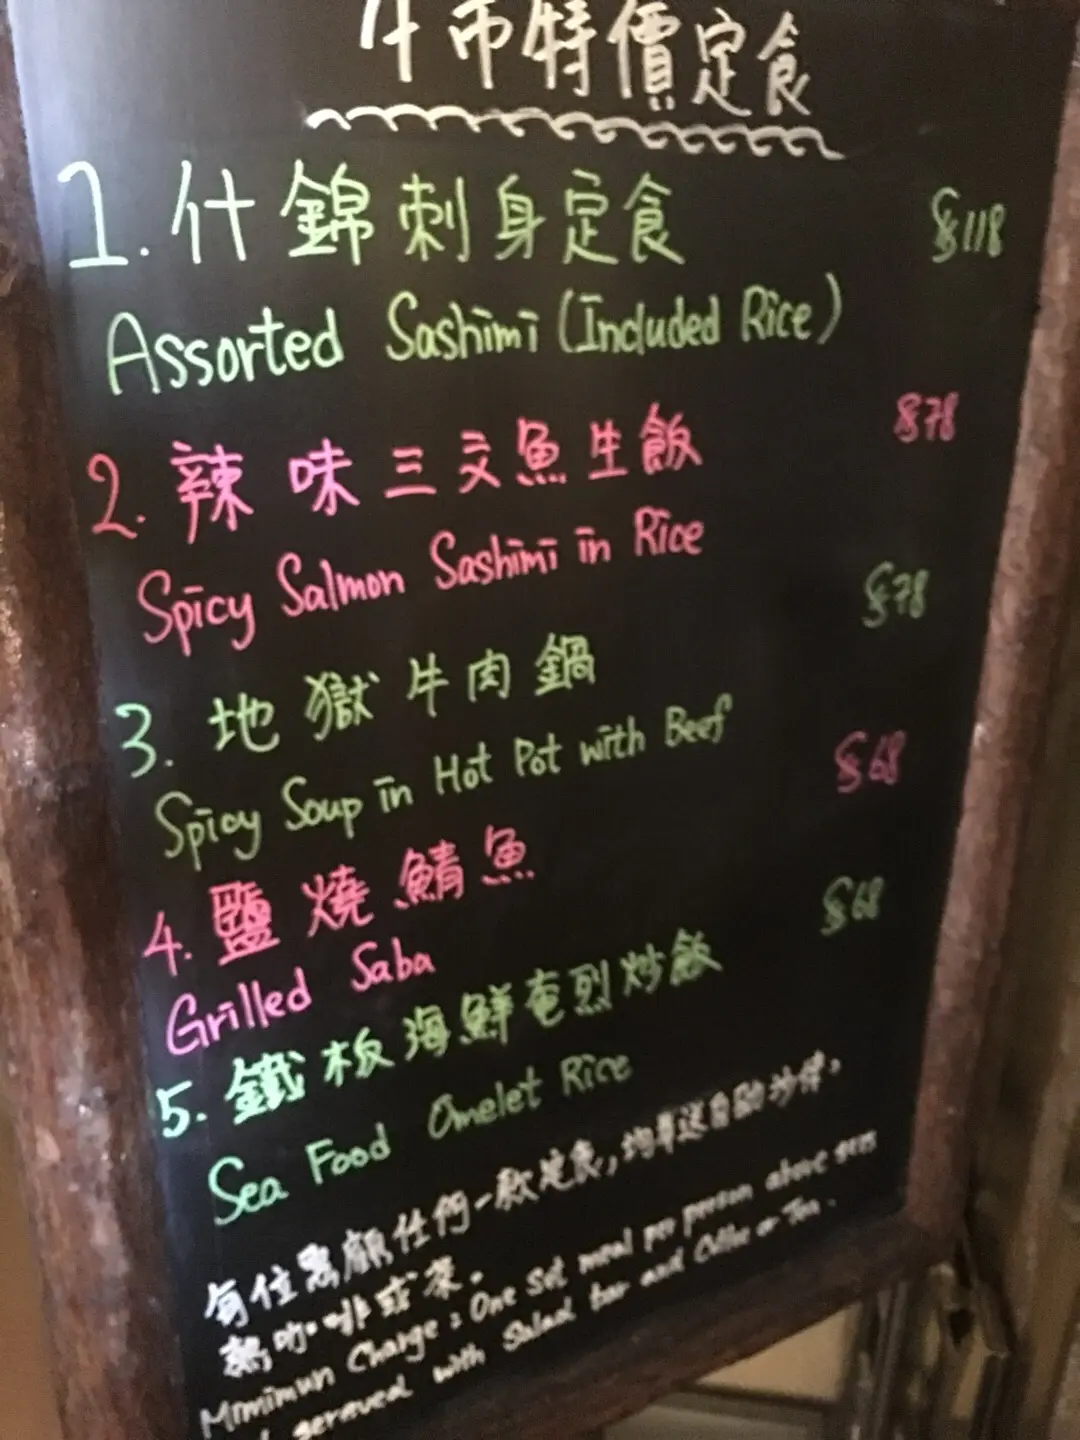 午市特價定食
1. 什錦刺身定食 $118
Assorted Sashimi (Included Rice)
2. 辣味三文魚生飯 $78
Spicy Salmon Sashimi in Rice
3. 地獄牛肉鍋 $78
Spicy Soup in Hot Pot with Beef
4. 鹽燒鯖魚 $68
Grilled Saba
5. 鐵板海鮮奄烈炒飯 $68
Sea Food Omelet Rice
每位惠顧任何一款定食,均奉送自助沙律,
熱咖啡或茶.
Mimimun Charge: One Set meal per person above sets
served with Salad bar and Coffee or Tea.